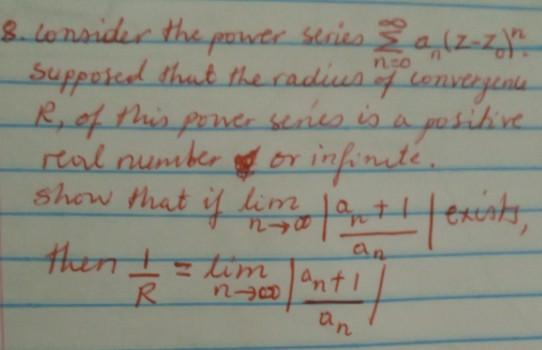 8. Consider the power series ∞∑n=0 aₙ(z-z₀)ⁿ.
Supposed that the radius of convergence
R, of this power series is a positive
real number or infinite.
Show that if lim n→∞ |aₙ+1/aₙ| exists,
then 1/R = lim n→∞ |aₙ+1/aₙ|